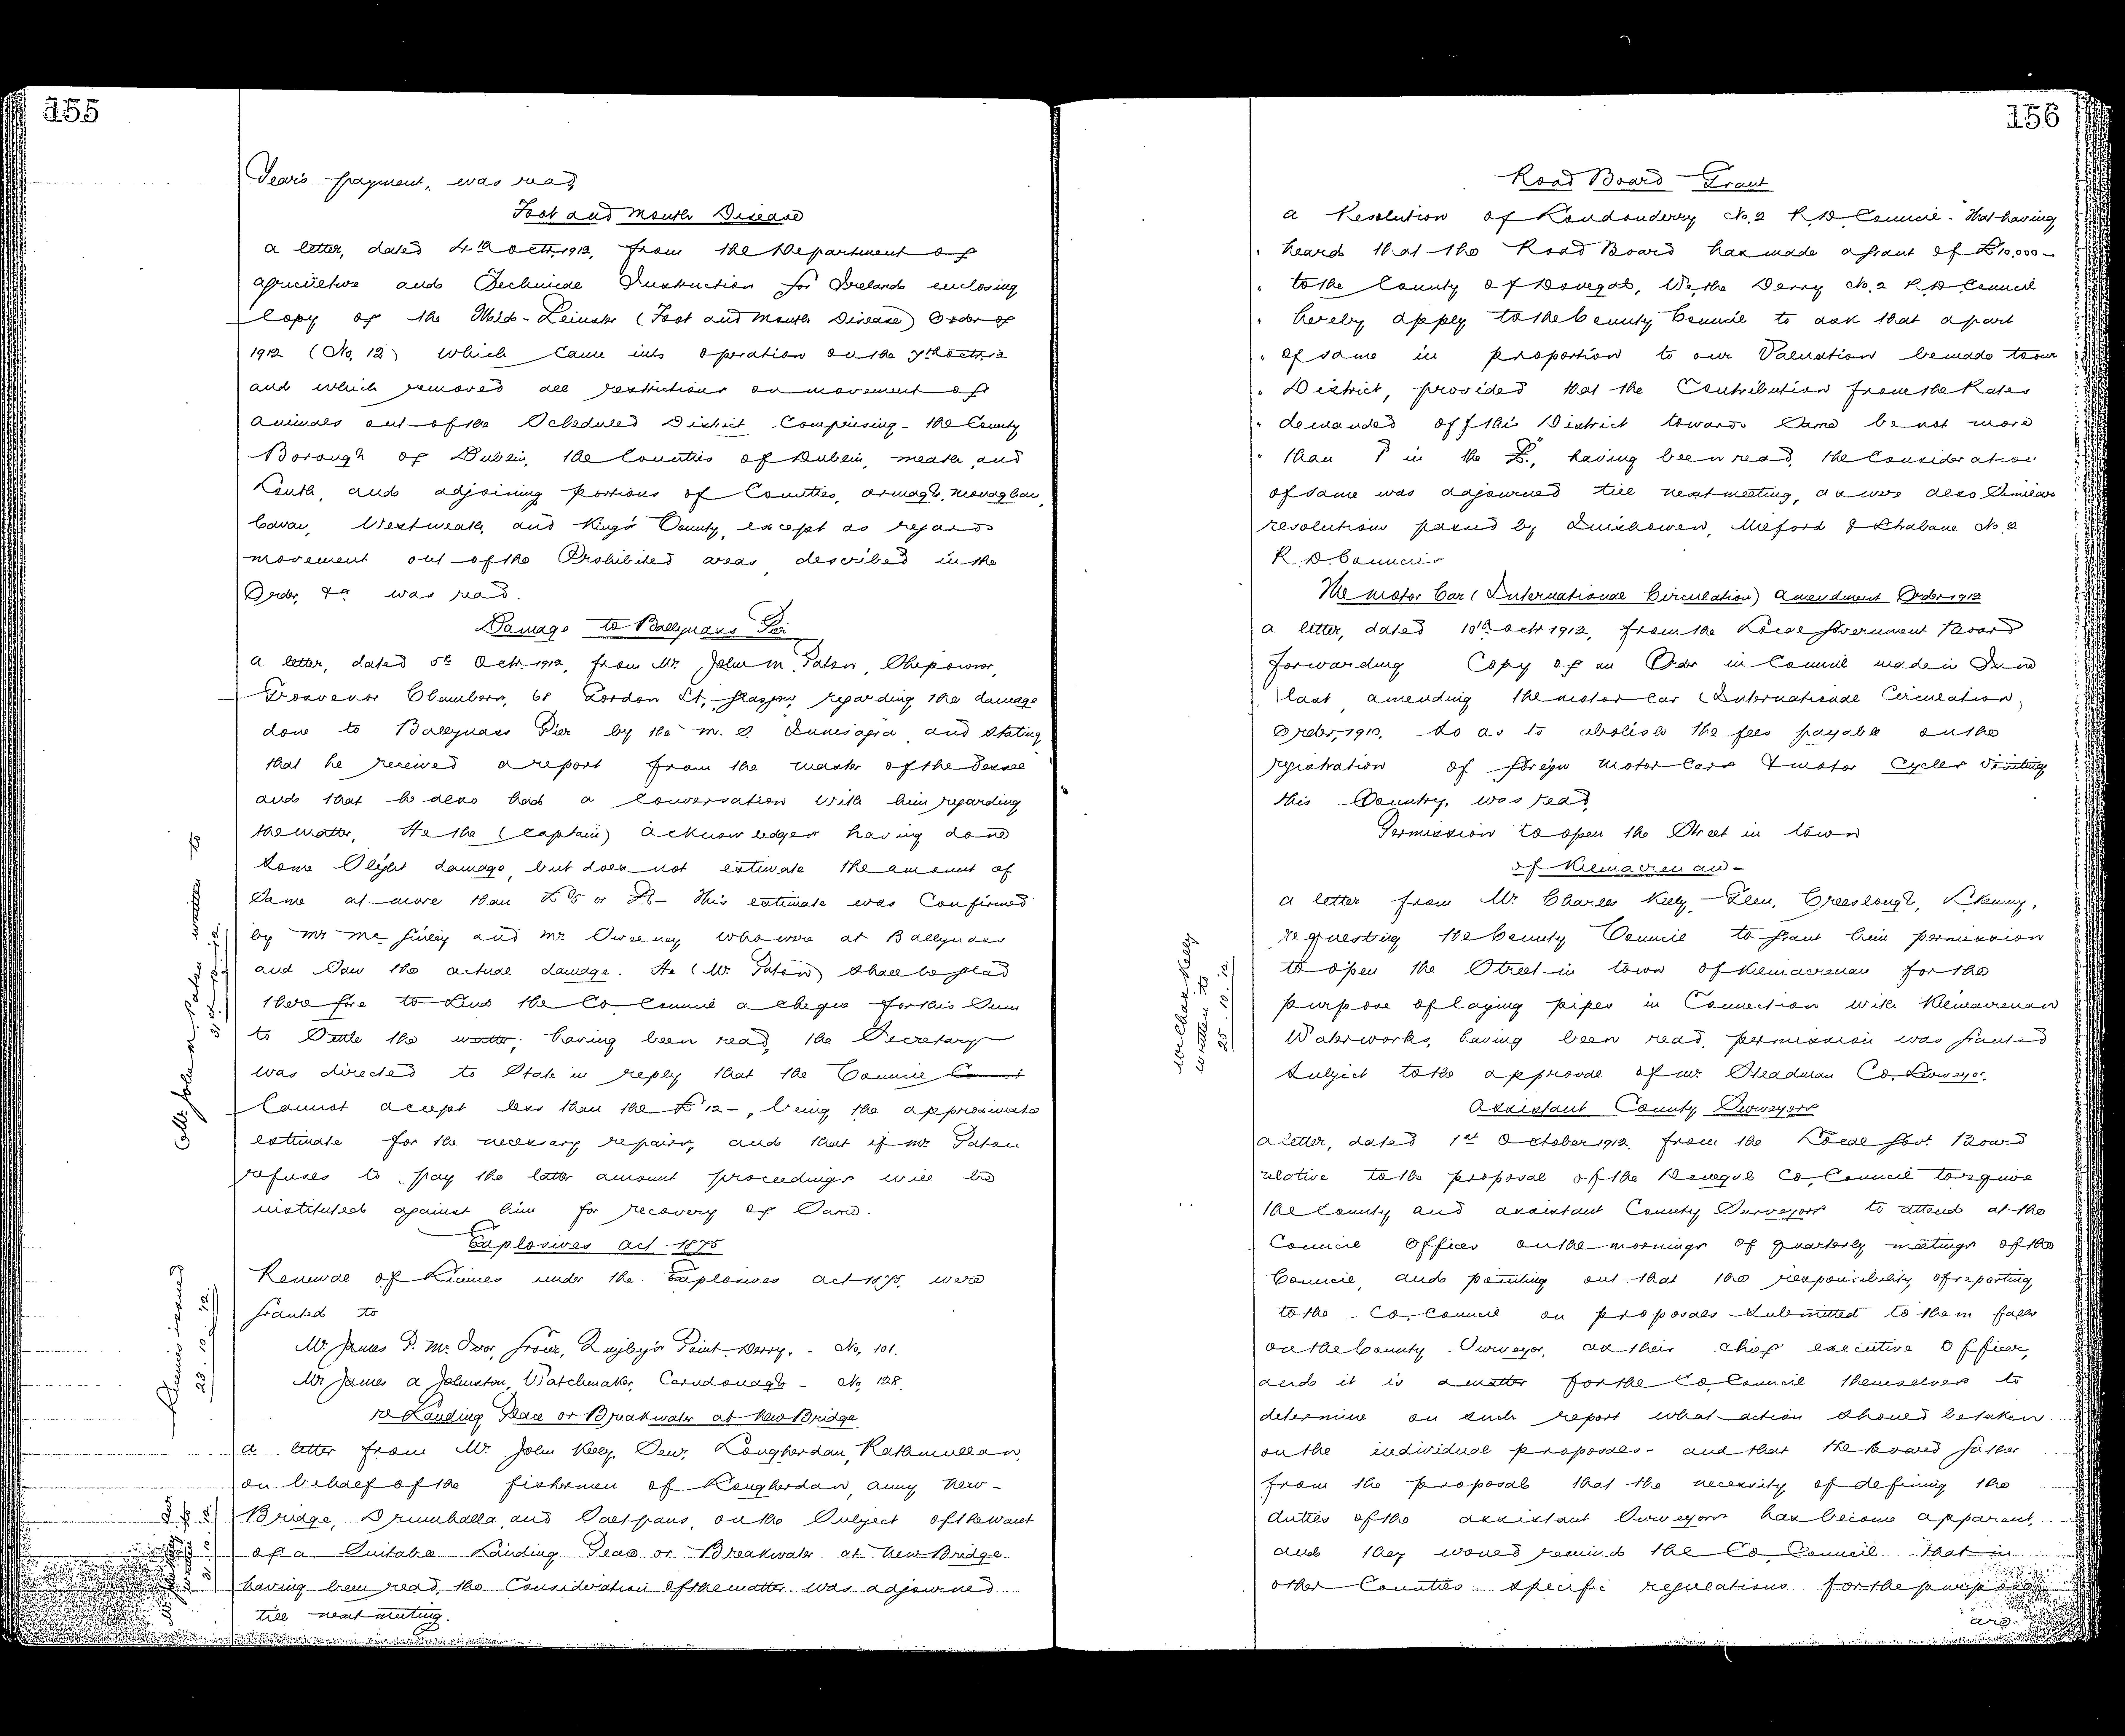 155
Years payment, was read
Foot and Mouth Disease
a letter, dated 4th Octr. 1912, from the Department of
Agriculture and Technical Instruction for Ireland enclosing
Copy of the Mid-Leinster (Foot and Mouth Disease) Order of
1912 (No. 12) which came into operation on the 7th Octr. 12
and which removed all restrictions on movement of
animals out of the Scheduled District Comprising the County
Borough of Dublin, the Counties of Dublin, Meath, and
Louth, and adjoining portions of Counties, Armagh, Monaghan,
Cavan, Westmeath, and King's County, except as regards
movement out of the Prohibited areas, described in the
Order, &c was read.
Damage to Ballyness Pier
a letter, dated 5th Octr. 1912, from Mr. John M. Paton, Shipowner,
Grosvenor Chambers, 68 Gordon St, Glasgow, regarding the damage
done to Ballyness Pier by the M. S. Innisagra and stating
that he received a report from the master of the Vessel
and that he also had a Conversation with him regarding
the matter. He the (Captain) acknowledges having done
some Slight damage, but does not estimate the amount of
Same at more than £5 or £6 - This estimate was Confirmed
by Mr McGinley and Mr. Sweeney who were at Ballyness
and Saw the actual damage. He (Mr. Paton) shall be glad
therefore to send the Co. Council a cheque for this Sum
to Settle the matter; having been read, the Secretary
was directed to State in reply that the Council
Cannot accept less than the £12-, being the approximate
estimate for the necessary repairs, and that if Mr. Paton
refuses to pay the latter amount proceedings will be
instituted against him for recovery of Same.
Mr. John M. Paton written to
31.10.12.
Explosives Act 1875
Renewal of Licenses under the Explosives Act 1875, were
Granted to
Mr James P. McIvor, Grocer, Quigley's Point, Derry. - No. 101.
Mr James A Johnston, Watchmaker, Carndonagh - No. 128.
Licenses issued
23.10.12.
re Landing Place or Breakwater at New Bridge
a letter from Mr. John Kelly, Senr, Lougherdan, Rathmullan,
on behalf of the fishermen of Lougherdan, New-
Bridge, Drumhalla, and Saltpans, on the Subject of the want
of a Suitable Landing Place or Breakwater at New Bridge
having been read, the Consideration of the matter was adjourned
till next meeting.
31.10.12.
156
Road Board Grant
a Resolution of Londonderry No. 2 R. D. Council - "That having
" heard that the Road Board has made a Grant of £10,000 -
" to the County of Donegal, We, the Derry No. 2 R. D. Council
" hereby apply to the County Council to ask that a part
" of same in proportion to our Valuation be made to our
" District, provided that the Contribution from the Rates
" demanded off this District towards Same be not more
" than 1d in the £", having been read, the Consideration
of same was adjourned till next meeting, as were also Similar
resolutions passed by Inishowen, Milford & Strabane No. 2
R. D. Councils
The Motor Car (International Circulation) Amendment Order 1912
a letter, dated 10th Octr 1912, from the Local Government Board
forwarding Copy of an Order in Council made in June
last amending the Motor Car (International Circulation,
Order, 1910, so as to abolish the fees payable on the
registration of foreign Motor Cars & Motor Cycles visiting
this Country, was read
Permission to open the Street in town
of Kilmacrenan -
a letter from Mr. Charles Kelly, Glen, Creeslough, Lkenny,
requesting the County Council to grant him permission
to open the Street in town of Kilmacrenan for the
purpose of laying pipes in Connection with Kilmacrenan
Waterworks, having been read, permission was granted
Subject to the approval of Mr. Steadman Co. Surveyor.
Mr Chas Kelly
written to
25.10.12
Assistant County Surveyors
a letter, dated 1st October 1912, from the Local Govt. Board
relative to the proposal of the Donegal Co. Council to require
the County and assistant County Surveyors to attend at the
Council Offices on the mornings of quarterly meetings of the
Council, and pointing out that the responsibility of reporting
to the Co. Council on proposals submitted to them falls
on the County Surveyor, as their chief executive Officer,
and it is a matter for the Co. Council themselves to
determine on such report what action should be taken
on the individual proposals - and that the board gather
from the proposal that the necessity of defining the
duties of the assistant Surveyors has become apparent,
and they would remind the Co. Council that in
other Counties specific regulations for the purpose
are